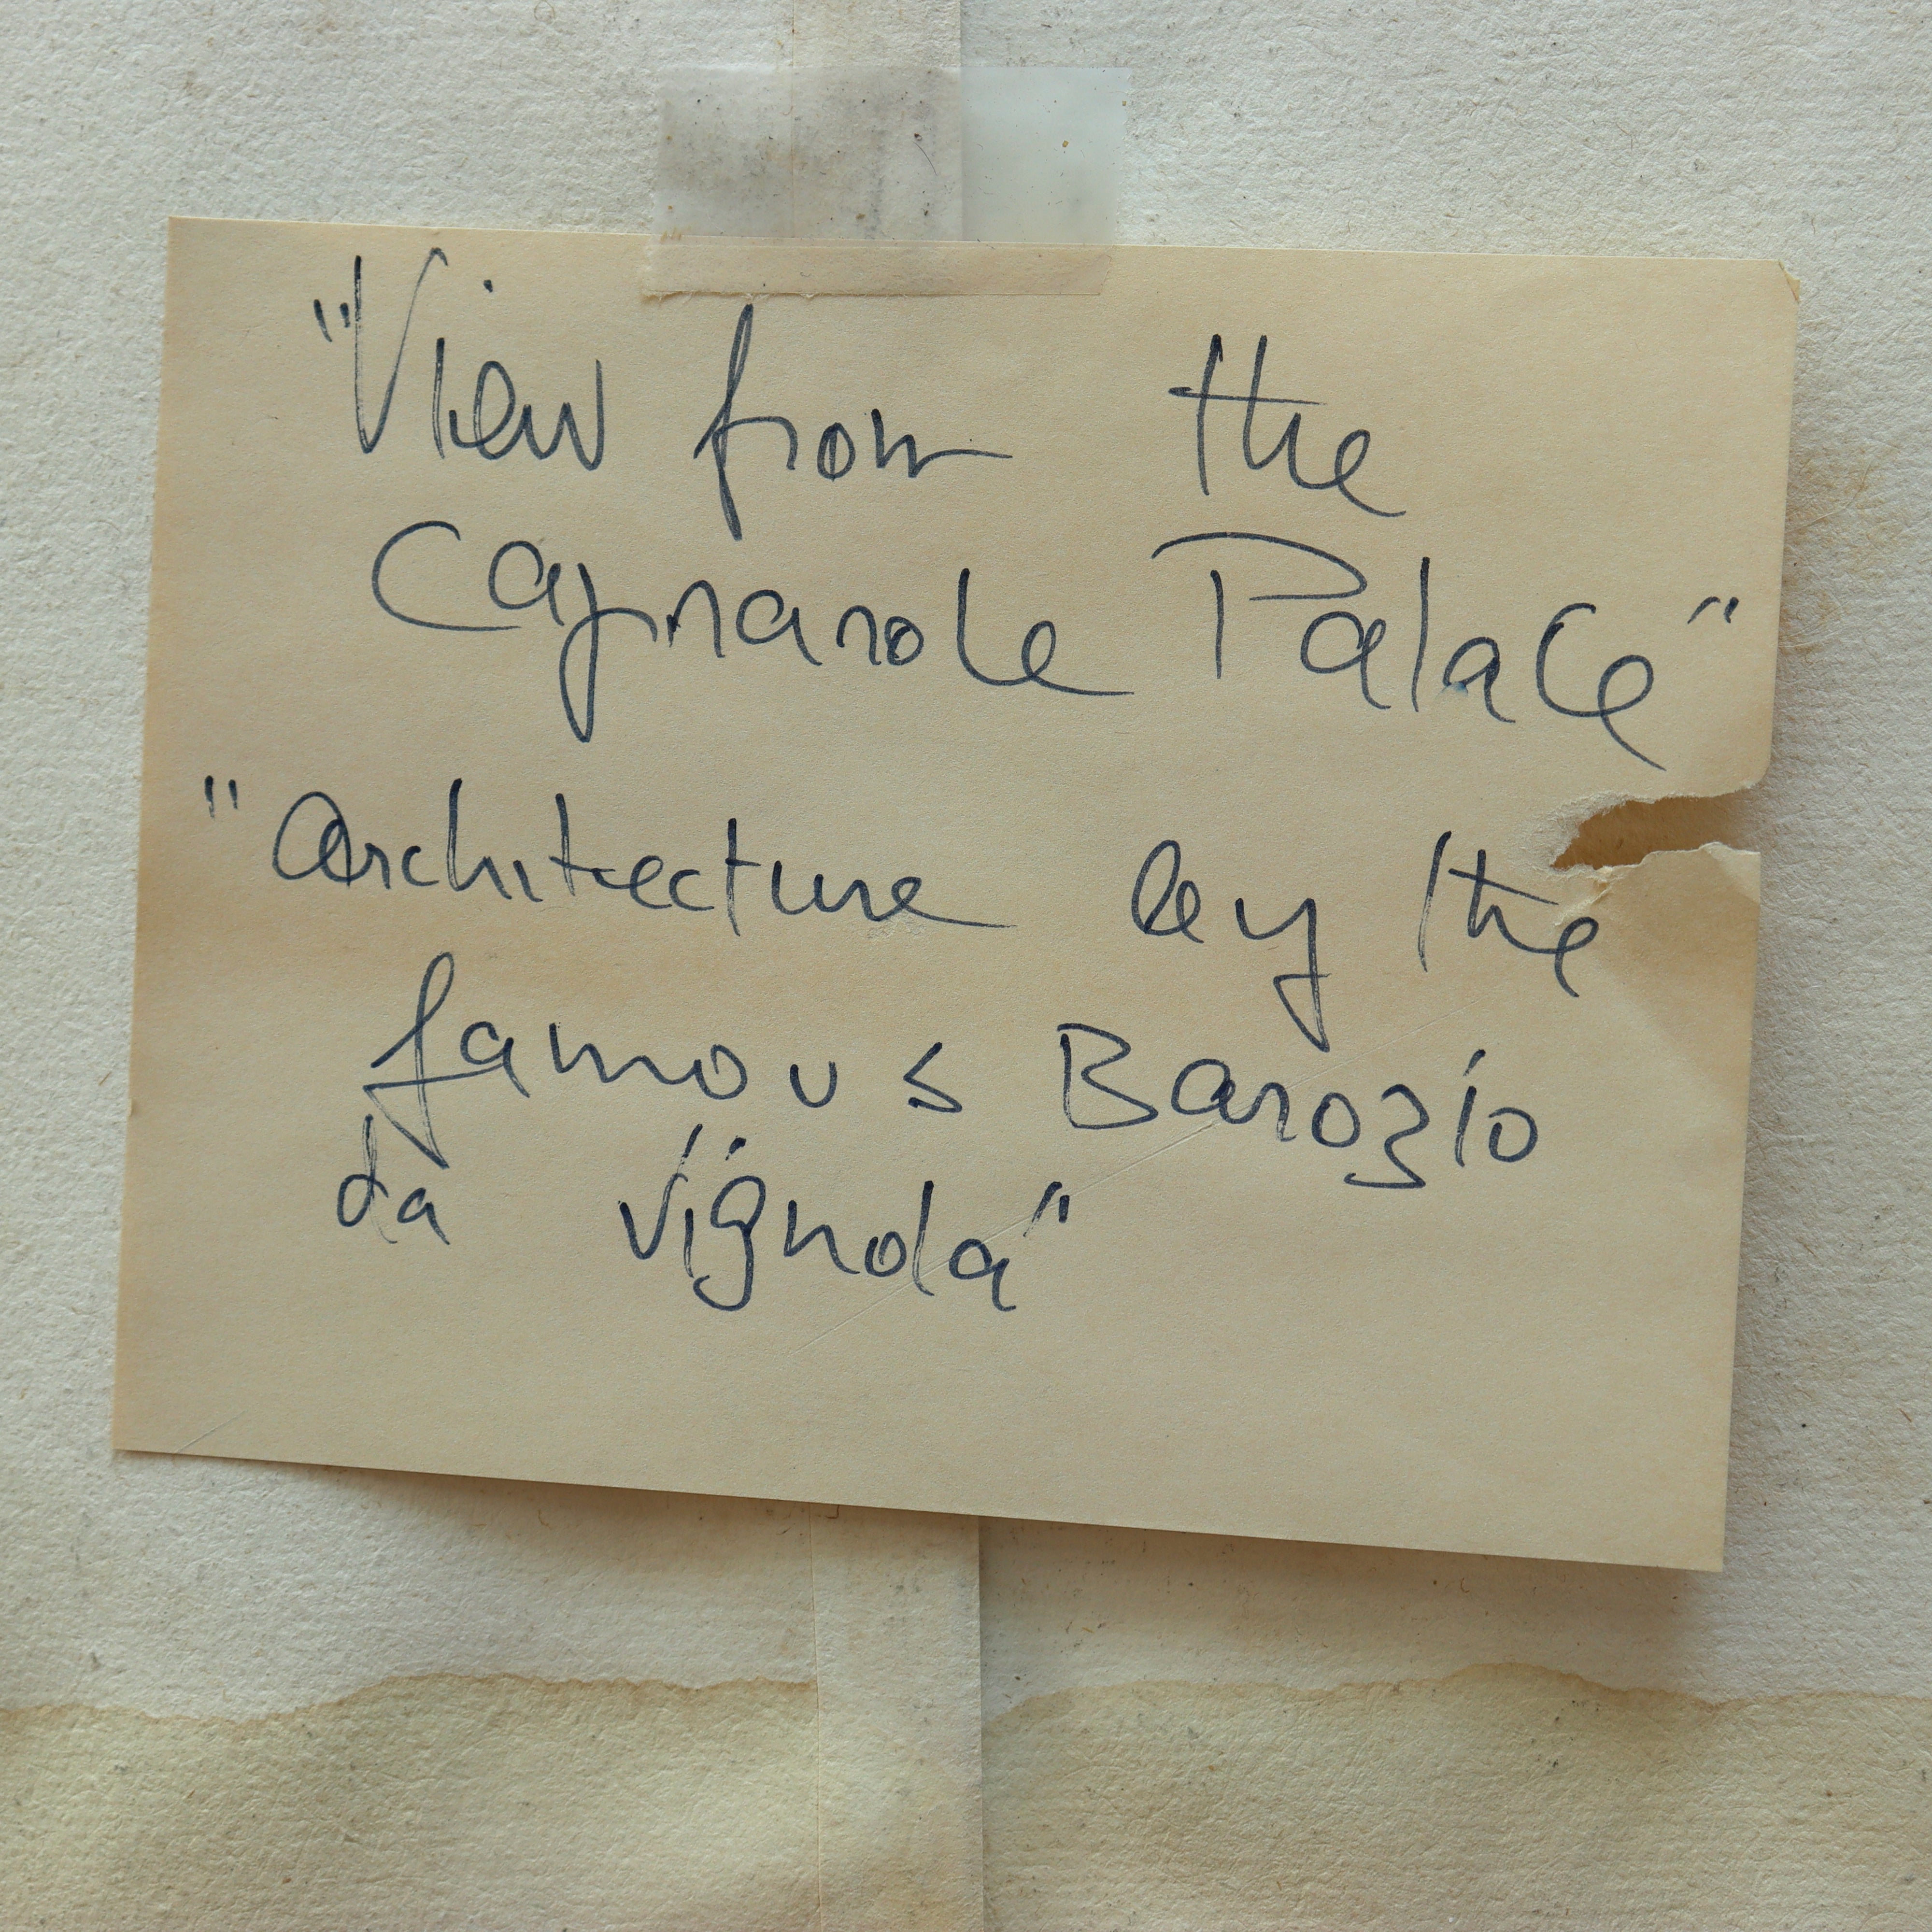 "View from the
Caprarole Palace"
"Architecture by the
famous Barozio
da Vignola"